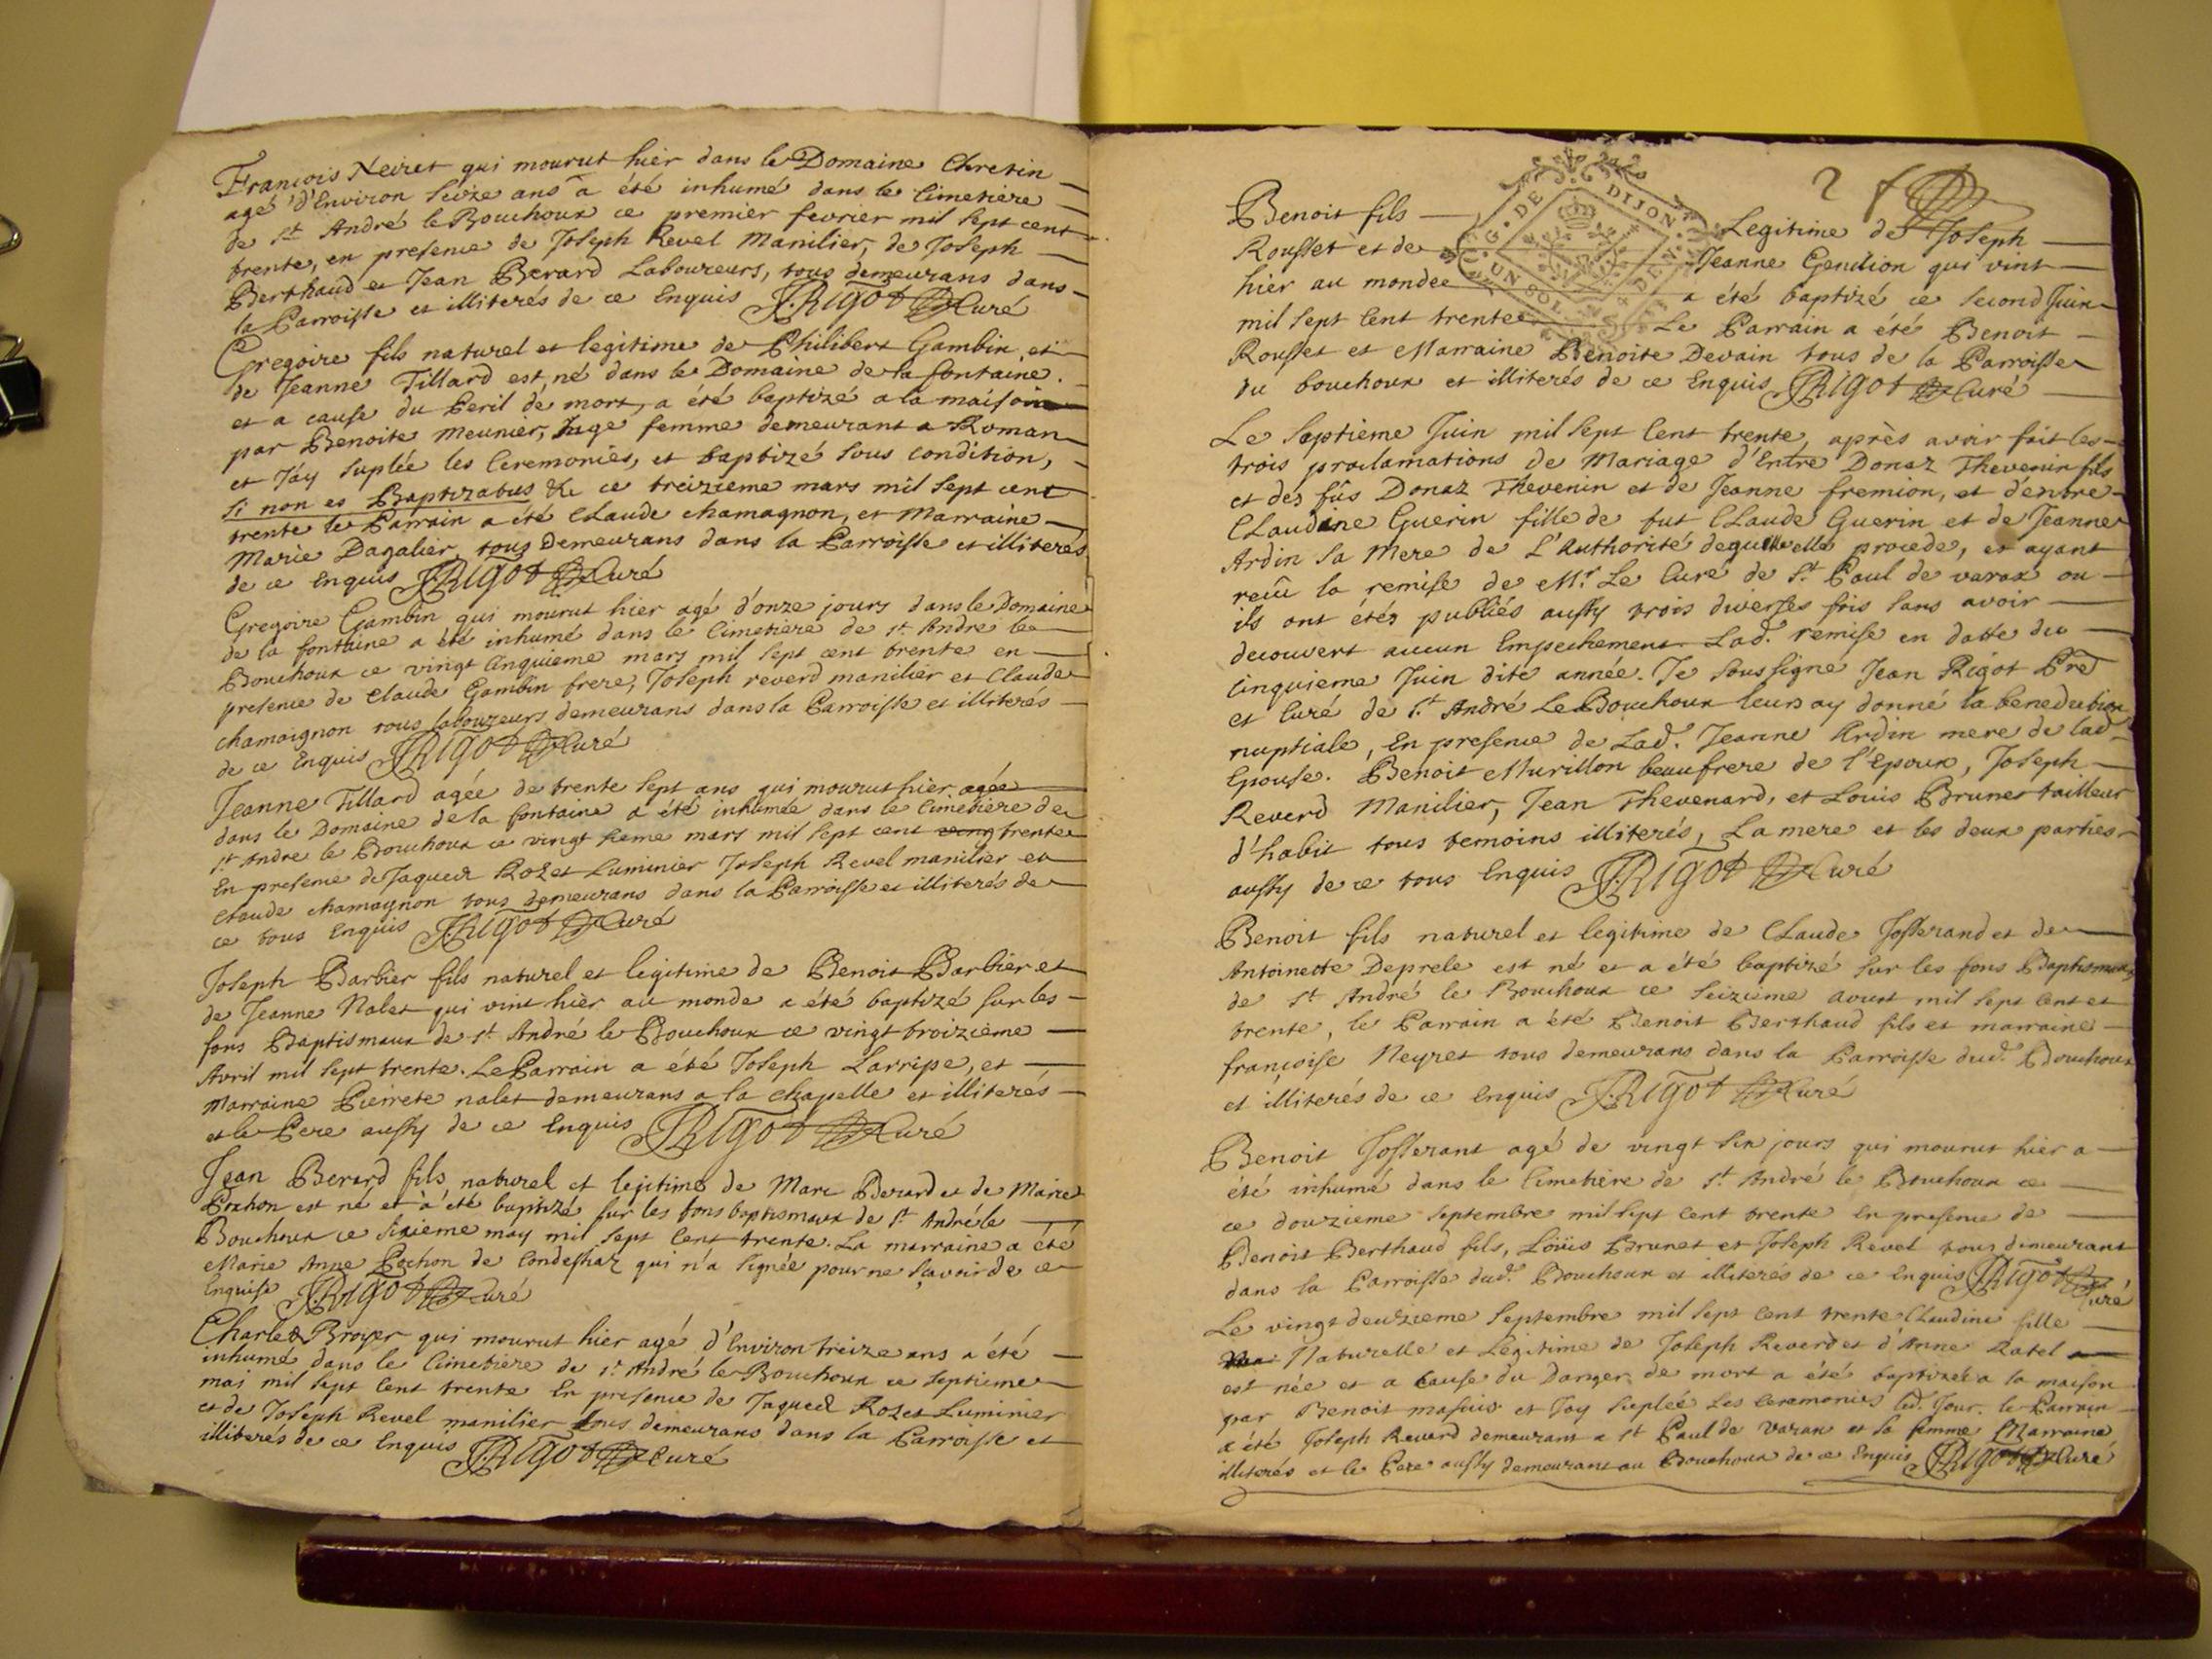 François Neiret qui mourut hier dans le Domaine Chretin
agé d'Environ seize ans a été inhumé dans le Cimetiere
de St André le Bouchoux ce premier fevrier mil sept cent
trente, en presence de Joseph Revel Manilier, de Joseph
Berthaud et Jean Berard Laboureurs, tous demeurans dans
la Parroisse et illiterés de ce Enquis JRigot Curé
Gregoire fils naturel et legitime de Philibert Gambin et
de Jeanne Tillard est né dans le Domaine de la fontaine.
et a cause du Peril de mort, a été baptizé a la maison
par Benoite Meunier, sage femme demeurant a Roman
et J'ay suplée les Ceremonies, et baptizé sous condition,
si non es Baptizatus &c ce treizieme mars mil sept cent
trente le Parrain a été Claude chamagnon, et Marraine
Marie Dagalier, tous Demeurans dans la Parroisse et illiterés
de ce Enquis JRigot Curé
Gregoire Gambin qui mourut hier agé d'onze jours dans le Domaine
de la fontaine a été inhumé dans le Cimetiere de st André le
Bouchoux ce vingt Cinquieme mars mil sept cent trente en
presence de Claude Gambin frere, Joseph reverd manilier et Claude
chamaignon tous laboureurs demeurans dans la Parroisse et illiterés
de ce Enquis JRigot Curé
Jeanne Tillard agée de trente sept ans qui mourut hier agée
dans le Domaine de la fontaine a été inhumée dans le Cimetiere de
st André le Bouchoux ce vingt mars mil sept cent vong trente
En presence de Jaques Rozet Luminier Joseph Revel manilier et
Claude chamagnon tous demeurans dans la Parroisse et illiterés de
ce tous Enquis JRigot Curé
Joseph Barbier fils naturel et legitime de Benoit Barbier et
de Jeanne Nalet qui vint hier au monde a été baptizé sur les
fons Baptismaux de st André le Bouchoux ce vingt troizieme
Avril mil sept trente. Le Parrain a été Joseph Larripe, et
Marraine Pierrete nalet demeurans a la chapelle et illiterés
et le Pere aussy de ce Enquis JRigot Curé
Jean Berard fils naturel et legitime de Marc Berard et de Marie
Pochon est né et à été baptizé sur les fons baptismaux de st André le
Bouchoux ce sixieme may mil sept cent trente. La marraine a été
Marie Anne Pochon de Condessiaz qui n'a signée pour ne sçavoir de ce
Enquise JRigot Curé
Charle Broyer qui mourut hier agé d'Environ treize ans a été
inhumé dans le Cimetiere de st André le Bouchoux ce septieme
mai mil sept cent trente En presence de Jaques Rozet Luminier
et de Joseph Revel manilier tous demeurans dans la Parroisse et
illiterés de ce Enquis JRigot Curé
2
G. DE DIJON
UN SOL 4 DEN.
Benoit fils Legitime de Joseph
Rousset et de Jeanne Gendion qui vint
hier au monde a été baptizé ce second Juin
mil sept cent trente Le Parrain a été Benoit
Rousset et Marraine Benoite Devain tous de la Parroisse
du bouchoux et illiterés de ce Enquis JRigot Curé
Le septieme Juin mil sept cent trente, après avoir fait les
trois proclamations de Mariage d'Entre Donaz Thevenin fils
et des fûs Donaz Thevenin et de Jeanne fremion, et d'entre
Claudine Guerin fille de fut Claude Guerin et de Jeanne
Ardin sa Mere de L'Authorité de procede, et ayant
reçû la remise de Mr. Le Curé de St. Paul de varax ou
ils ont étés publiés aussy trois diverses fois sans avoir
decouvert aucun Empechement. Lad. remise en datte du
Cinquieme Juin dite année. Je soussigné Jean Rigot Pre
et Curé de St. André Le Bouchoux leurs ay donné la benediction
nuptiale, En presence de Lad. Jeanne Ardin mere de lad
Epouse. Benoit Murillon beaufrere de l'Epoux, Joseph
Reverd Manilier, Jean Thevenard, et Louis Brunet tailleur
d'habit tous temoins illiterés, La mere et les deux parties
aussy de ce tous Enquis JRigot Curé
Benoit fils naturel et legitime de Claude Josserand et de
Antoinette Deprele est né et a été baptizé sur les fons Baptismaux
de st André le Bouchoux ce seizieme aoust mil sept cent et
trente, le Parrain a été Benoit Berthaud fils et marraine
françoise Neyret tous demeurans dans la Parroisse dud. Bouchoux
et illiterés de ce Enquis JRigot Curé
Benoit Josserant agé de vingt six jours qui mourut hier a
été inhumé dans le Cimetière de st. André le Bouchoux ce
ce douzieme septembre mil sept cent trente en presence de
Benoit Berthaud fils, Loüis Brunet et Joseph Revel tous demeurant
dans la Parroisse dud. Bouchoux et illiterés de ce Enquis JRigot Curé
Le vingt deuzieme septembre mil sept cent trente Claudine fille
Naturelle et Légitime de Joseph Reverd et d'Anne Ratel
est née et a cause du Danger de mort a été baptizée a la maison
par Benoit et J'ay suplée Les Ceremonies led. Jour. le Parrain
a été Joseph Reverd demeurant a st Paul de varax et sa femme Marraine
illiterés et le Pere aussy demeurant au Bouchoux de ce Enquis JRigot Curé